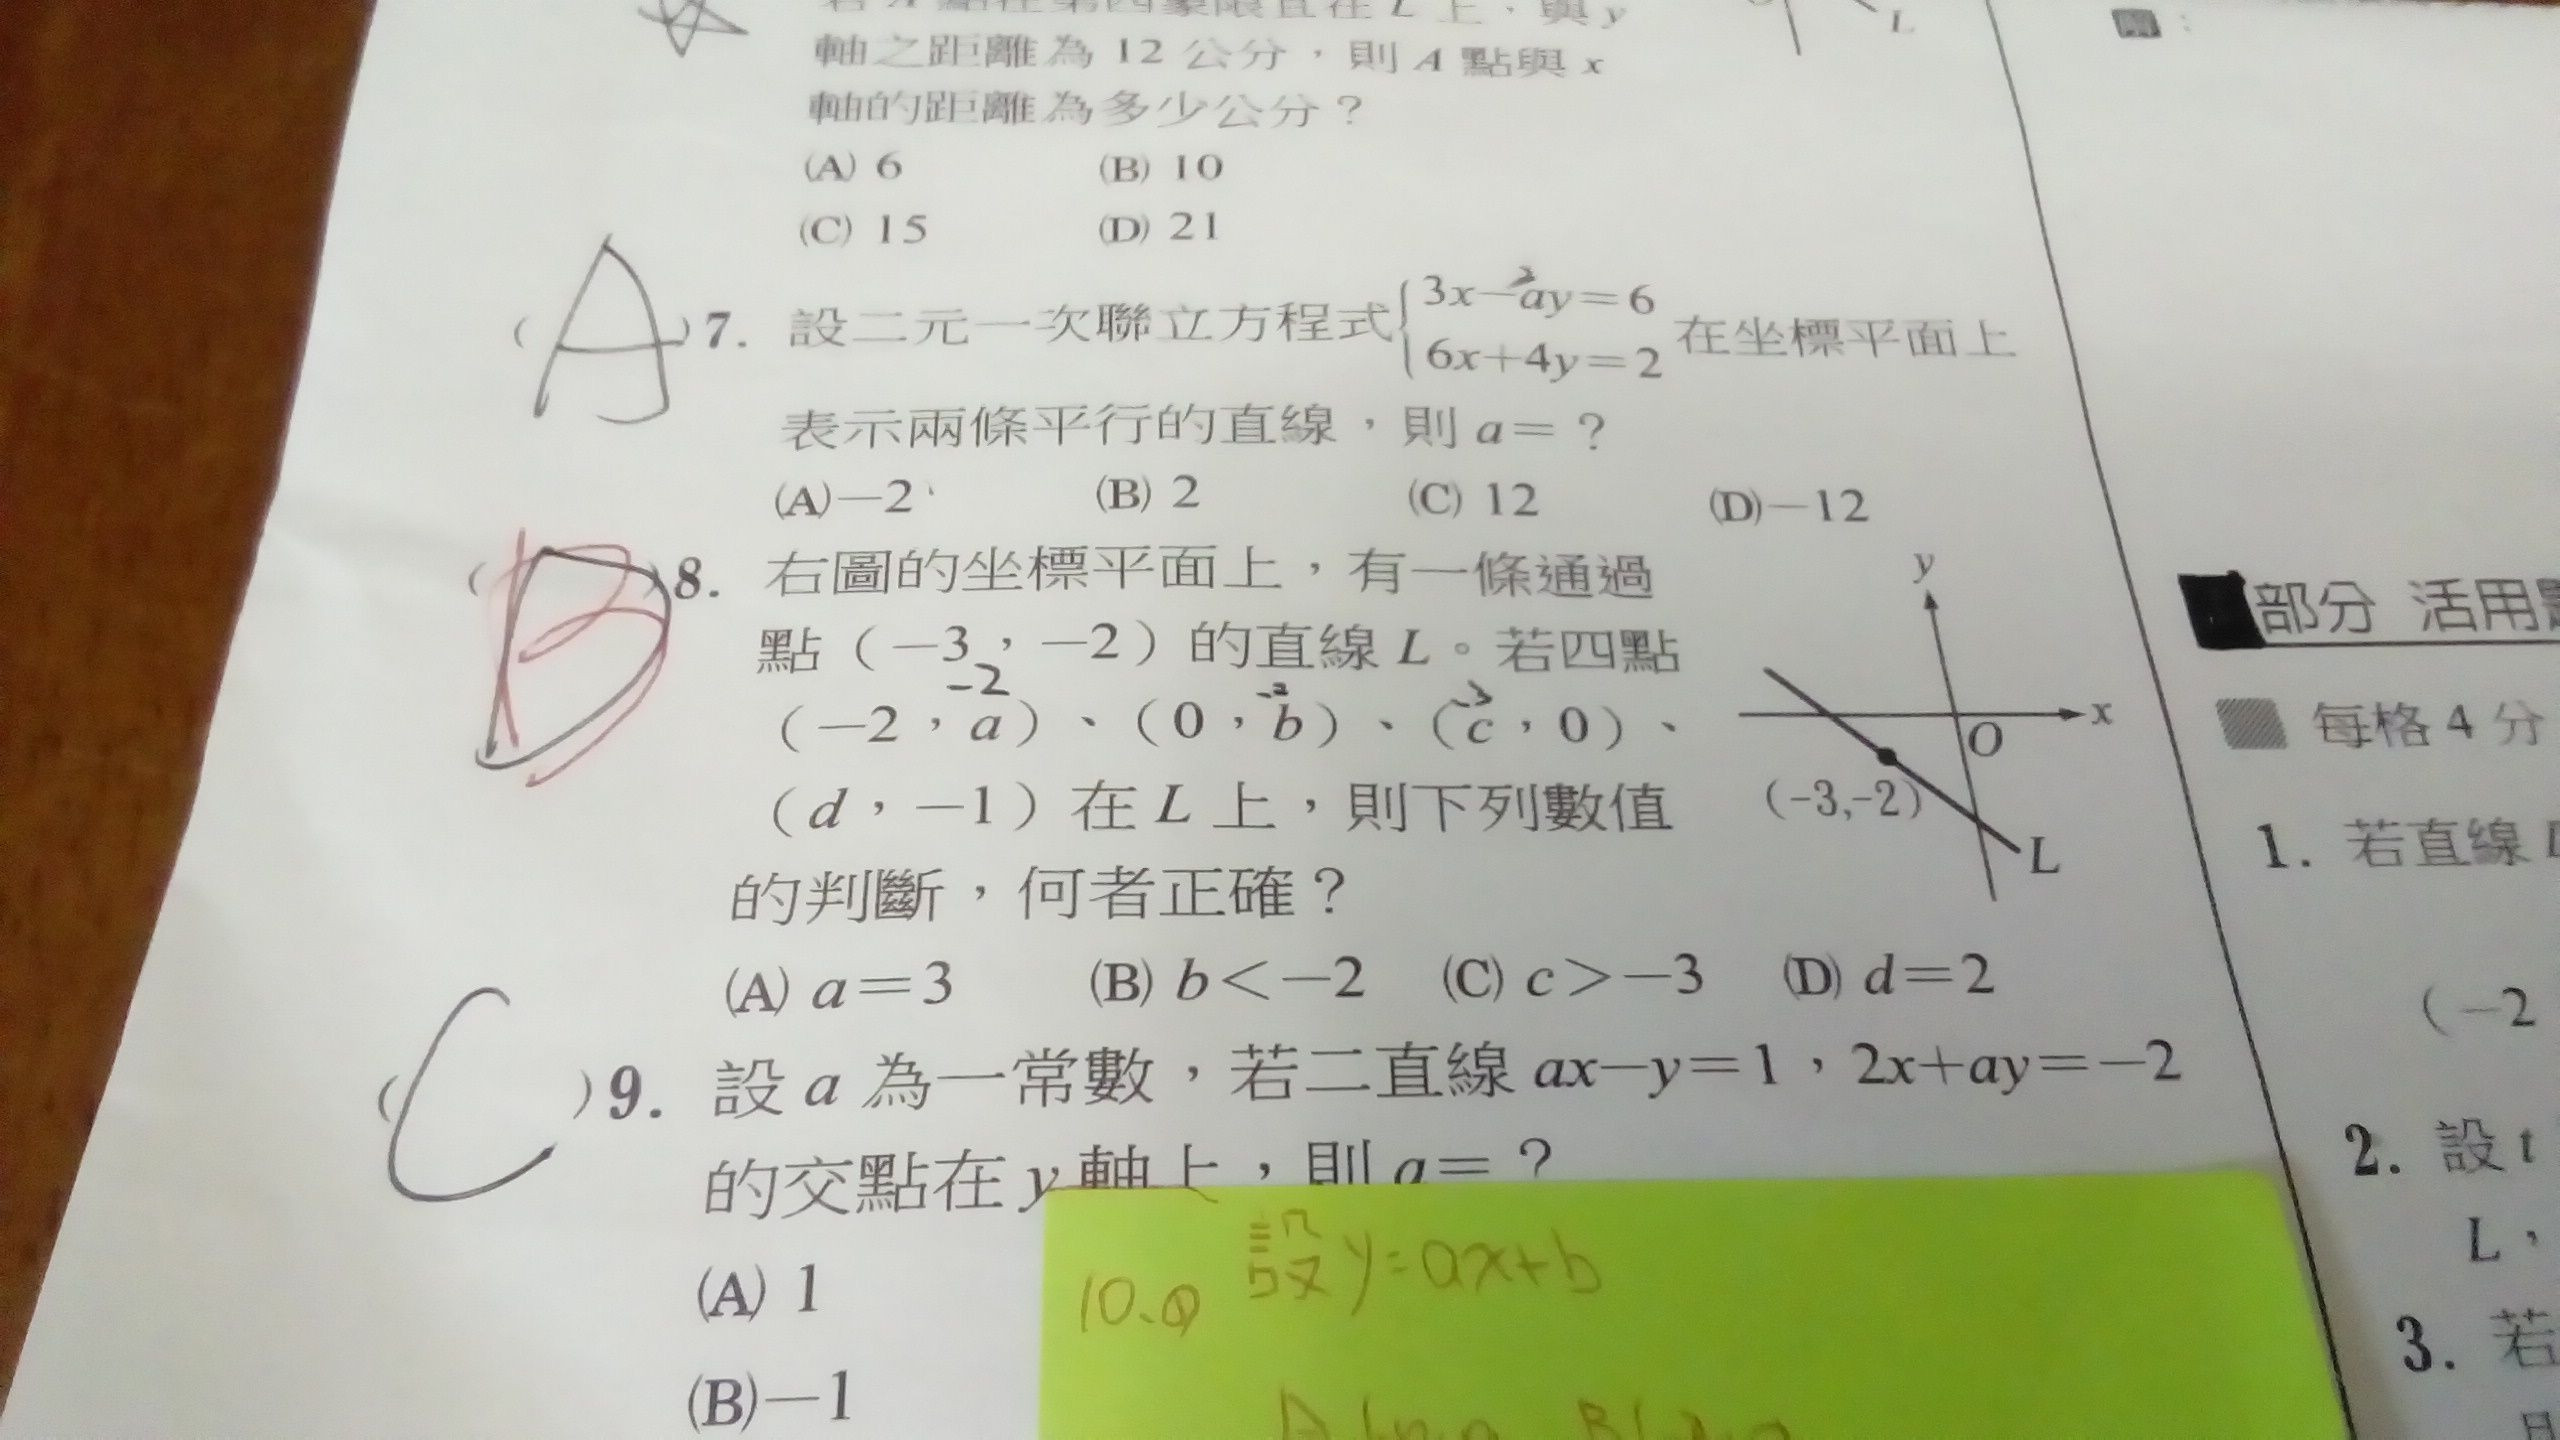 若 A 點在第四象限且在 L 上，與 y
軸之距離為 12 公分，則 A 點與 x
軸的距離為多少公分？
(A) 6 (B) 10
(C) 15 (D) 21
L
(A) 7. 設二元一次聯立方程式{3x－ay＝6 在坐標平面上
2
6x＋4y＝2
表示兩條平行的直線，則 a＝？
(A)－2 (B) 2 (C) 12 (D)－12
(B) 8. 右圖的坐標平面上，有一條通過
點（－3，－2）的直線 L。若四點
-2 -2 -3
（－2，a）、（0，b）、（c，0）、
（d，－1）在 L 上，則下列數值
的判斷，何者正確？
y
x
O
(-3,-2)
L
(A) a＝3 (B) b＜－2 (C) c＞－3 (D) d＝2
(C) 9. 設 a 為一常數，若二直線 ax－y＝1，2x＋ay＝－2
的交點在 y 軸上，則 a＝？
(A) 1
(B)－1
10. 設 y=ax+b
部分 活用
每格 4 分
1. 若直線
（－2
2. 設 t
L，
3. 若